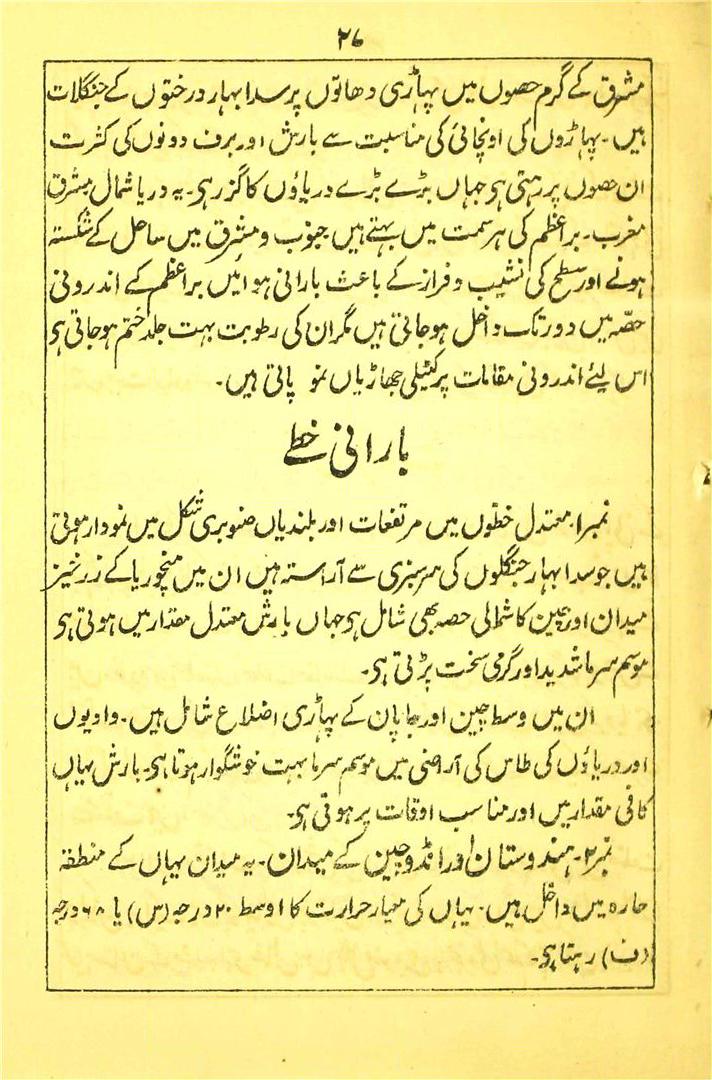 ۲۶
مشرق کے گرم حصوں میں پہاڑی دھاتوں پر سدا بہار درختوں کے جنگلات
ہیں۔ پہاڑوں کی اونچائی کی مناسبت سے بارش اور برف دونوں کی کثرت
ان حصوں پر رہتی ہو جہاں بڑے بڑے دریاؤں کا گزر ہو۔ یہ دریا شمال مشرق
مغرب۔ براعظم کی ہر سمت میں بہتے ہیں جنوب و مشرق میں ساحل کے شکستہ
ہونے اور سطح کی نشیب و فراز کے باعث بارانی ہوائیں براعظم کے اندرونی
حصّہ میں دور تک داخل ہو جاتی ہیں مگر ان کی رطوبت بہت جلد ختم ہو جاتی ہو
اس لیئے اندرونی مقامات پر کٹیلی جھاڑیاں نمو پاتی ہیں۔
بارانی خطے
نمبر۱۔ معتدل خطوں میں مرتفعات اور بلندیاں صنوبری شکل میں نمودار ہوتی
ہیں جو سدا بہار جنگلوں کی سرسبزی سے آراستہ ہیں ان میں منچوریا کے زرخیز
میدان اور چین کا شمالی حصہ بھی شامل ہو جہاں بارش معتدل مقدار میں ہوتی ہو
موسم سرما شدید اور گرمی سخت پڑتی ہو۔
ان میں وسط چین اور جاپان کے پہاڑی اضلاع شامل ہیں۔ وادیوں
اور دریاؤں کی طاس کی آراضی میں موسم سرما بہت خوشگوار ہوتا ہو۔ بارش یہاں
کافی مقدار میں اور مناسب اوقات پر ہوتی ہو۔
نمبر۲۔ ہندوستان اور انڈوچین کے میدان۔ یہ میدان یہاں کے منطقہ
حارہ میں داخل ہیں۔ یہاں کی معیار حرارت کا اوسط ۲۰ درجہ (س) یا ۶۸ درجہ
(ف) رہتا ہو۔